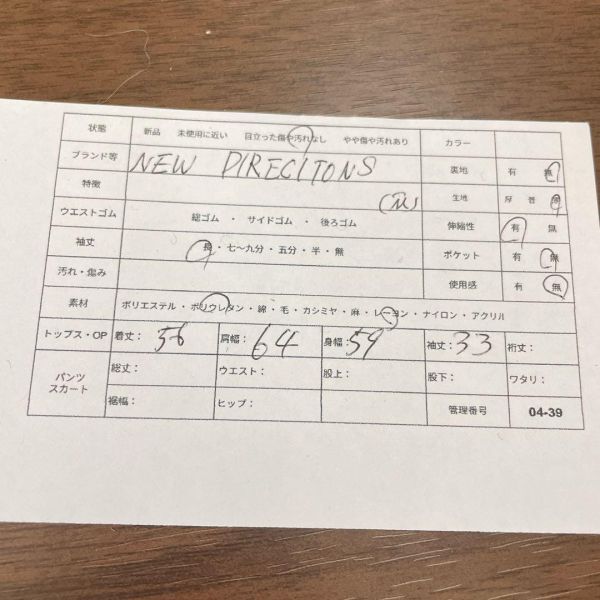 状態 新品 未使用に近い 目立った傷や汚れなし やや傷や汚れあり カラー
ブランド等 NEW DIRECITONS 裏地 有 無
特徴 (M) 生地 厚 普 薄
ウエストゴム 総ゴム ・ サイドゴム ・ 後ろゴム 伸縮性 有 無
袖丈 長・七〜九分・五分・半・無 ポケット 有 無
汚れ・傷み 使用感 有 無
素材 ポリエステル・ポリウレタン・綿・毛・カシミヤ・麻・レーヨン・ナイロン・アクリル
トップス・OP 着丈: 56 肩幅: 64 身幅: 59 袖丈: 33 裄丈:
パンツ スカート 総丈: ウエスト: 股上: 股下: ワタリ:
裾幅: ヒップ: 管理番号 04-39